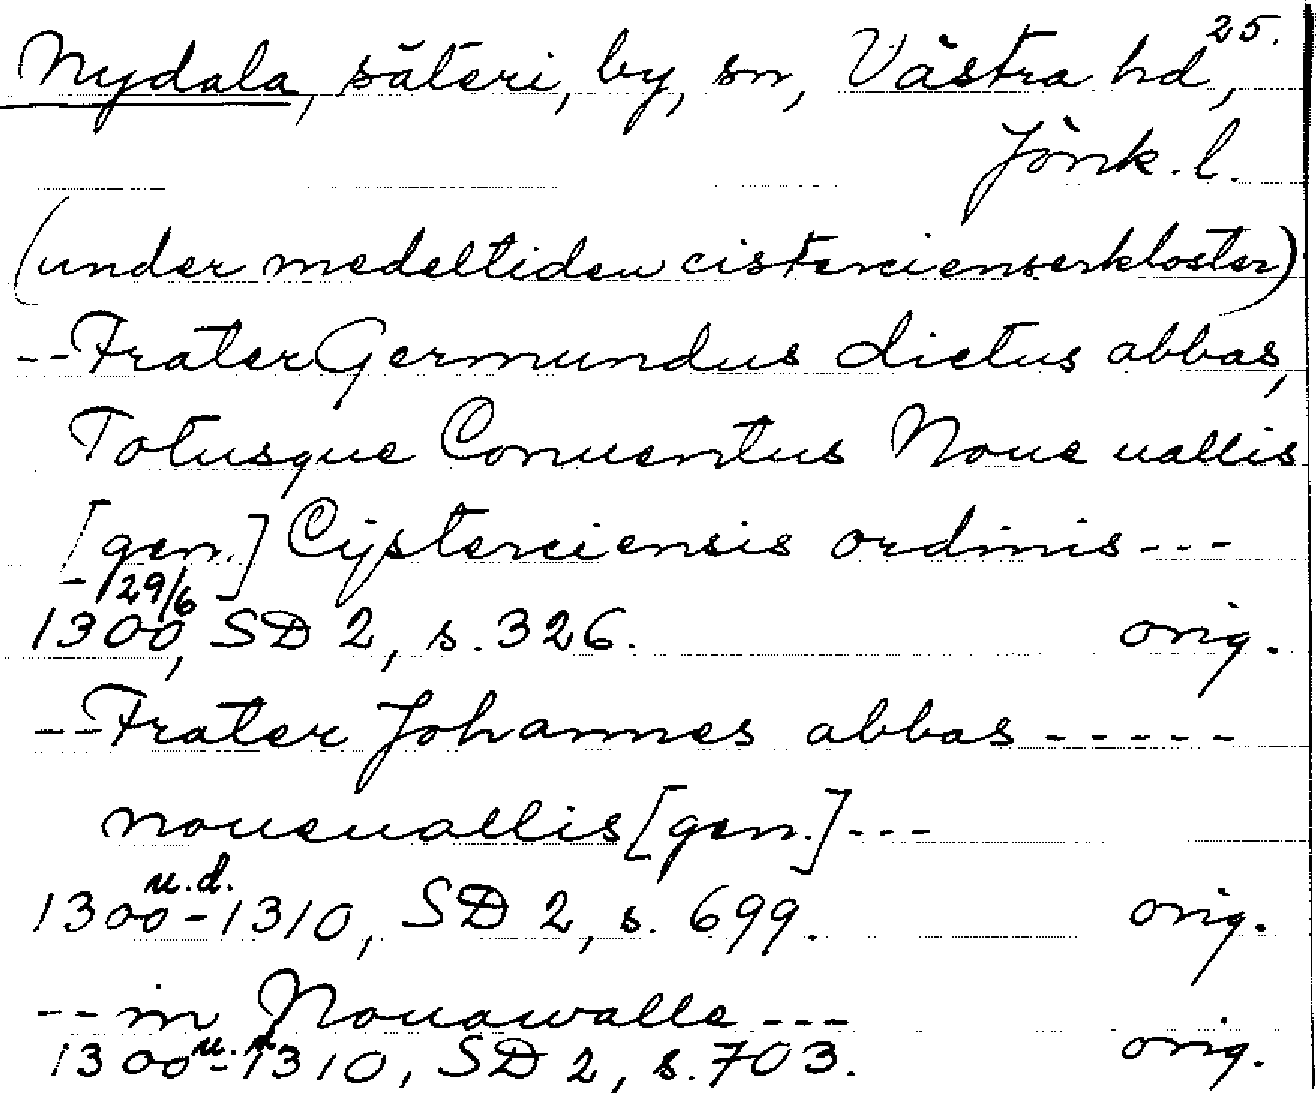 25.
Nydala, säteri, by, sn, Västra hd,
Jönk. l.
(under medeltiden cistercienserkloster)
--Frater Germundus dictus abbas,
Totusque Conuentus Noue uallis
[gen.] Cijsterciensis ordinis---
29/6
1300, SD 2, s. 326. orig.
--Frater Johannes abbas-----
noueuallis [gen.]---
u.d.
1300-1310, SD 2, s. 699. orig.
--in Nouawalle---
1300-1310, SD 2, s. 703. orig.